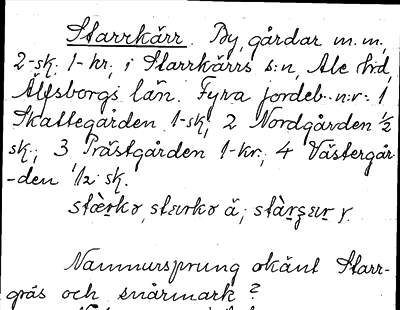 Starrkärr. By, gårdar m.m,
2-sk. 1-kr, i Starrkärrs s:n, Ale hrd,
Älfsborgs län. Fyra jordeb. n:r: 1
Skattegården 1-sk, 2 Nordgården ½
sk., 3 Prästgården 1-kr., 4 Västergår-
-den ½ sk.
stærkə, stærkə ä, stàrʂær y.
Namnursprung okänt Starr-
gräs och snårmark?